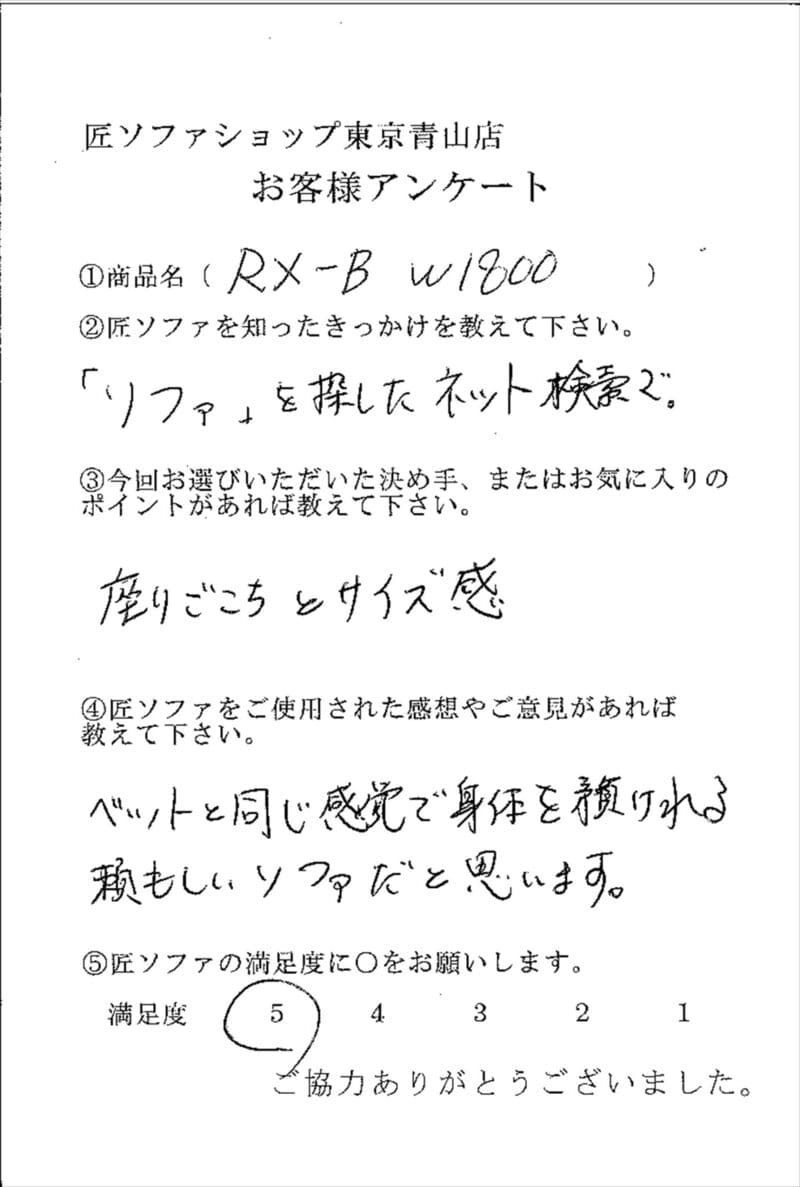 匠ソファショップ東京青山店
お客様アンケート
①商品名（ RX-B W1800 ）
②匠ソファを知ったきっかけを教えて下さい。
「ソファ」を探したネット検索で。
③今回お選びいただいた決め手、またはお気に入りの
ポイントがあれば教えて下さい。
座りごこちとサイズ感
④匠ソファをご使用された感想やご意見があれば
教えて下さい。
ベットと同じ感覚で身体を預けれる
頼もしいソファだと思います。
⑤匠ソファの満足度に〇をお願いします。
満足度 5 4 3 2 1
ご協力ありがとうございました。